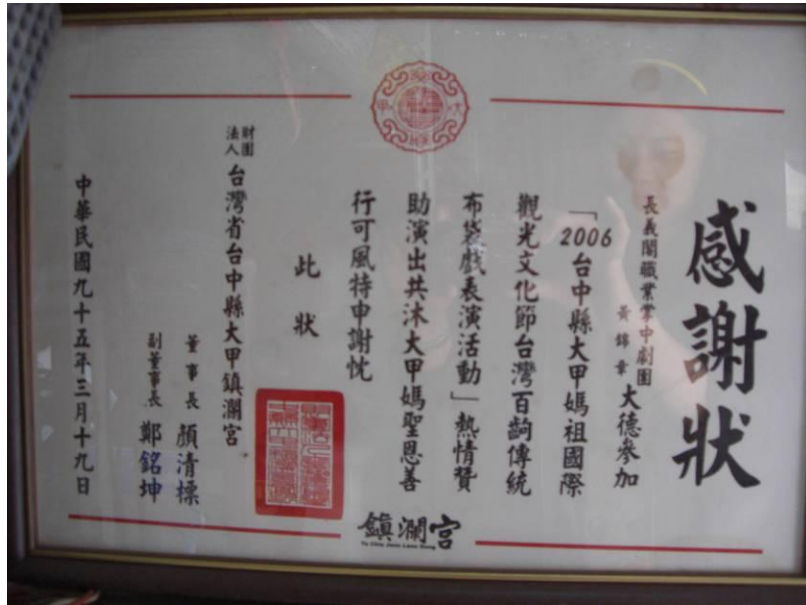 感謝狀
長義閣職業掌中劇團
黃錦章 大德參加
「2006台中縣大甲媽祖國際
觀光文化節台灣百齣傳統
布袋戲表演活動」熱情贊
助演出共沐大甲媽聖恩善
行可風特申謝忱
此狀
財團法人 台灣省台中縣大甲鎮瀾宮
董事長 顏清標
副董事長 鄭銘坤
中華民國九十五年三月十九日
鎮瀾宮